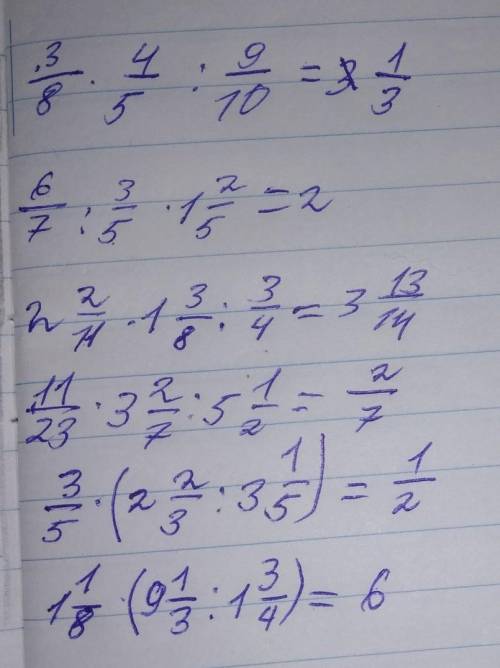 3/8 · 4/5 : 9/10 = 1/3
6/7 : 3/5 · 1 2/5 = 2
2 2/11 · 1 3/8 : 3/4 = 3 13/14
11/23 · 3 2/7 : 5 1/2 = 2/7
3/5 · (2 2/3 : 3 1/5) = 1/2
1 1/8 · (9 1/3 : 1 3/4) = 6